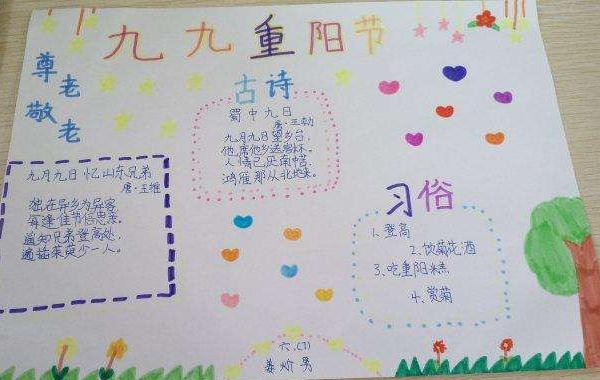 九九重阳节
尊老
敬老
古诗
蜀中九日
唐·王勃
九月九日望乡台,
他席他乡送客杯。
人情已厌南中苦,
鸿雁那从北地来。
九月九日忆山东兄弟
唐·王维
独在异乡为异客
每逢佳节倍思亲。
遥知兄弟登高处,
遍插茱萸少一人。
习俗
1、登高
2、饮菊花酒
3、吃重阳糕
4、赏菊
六.(1)